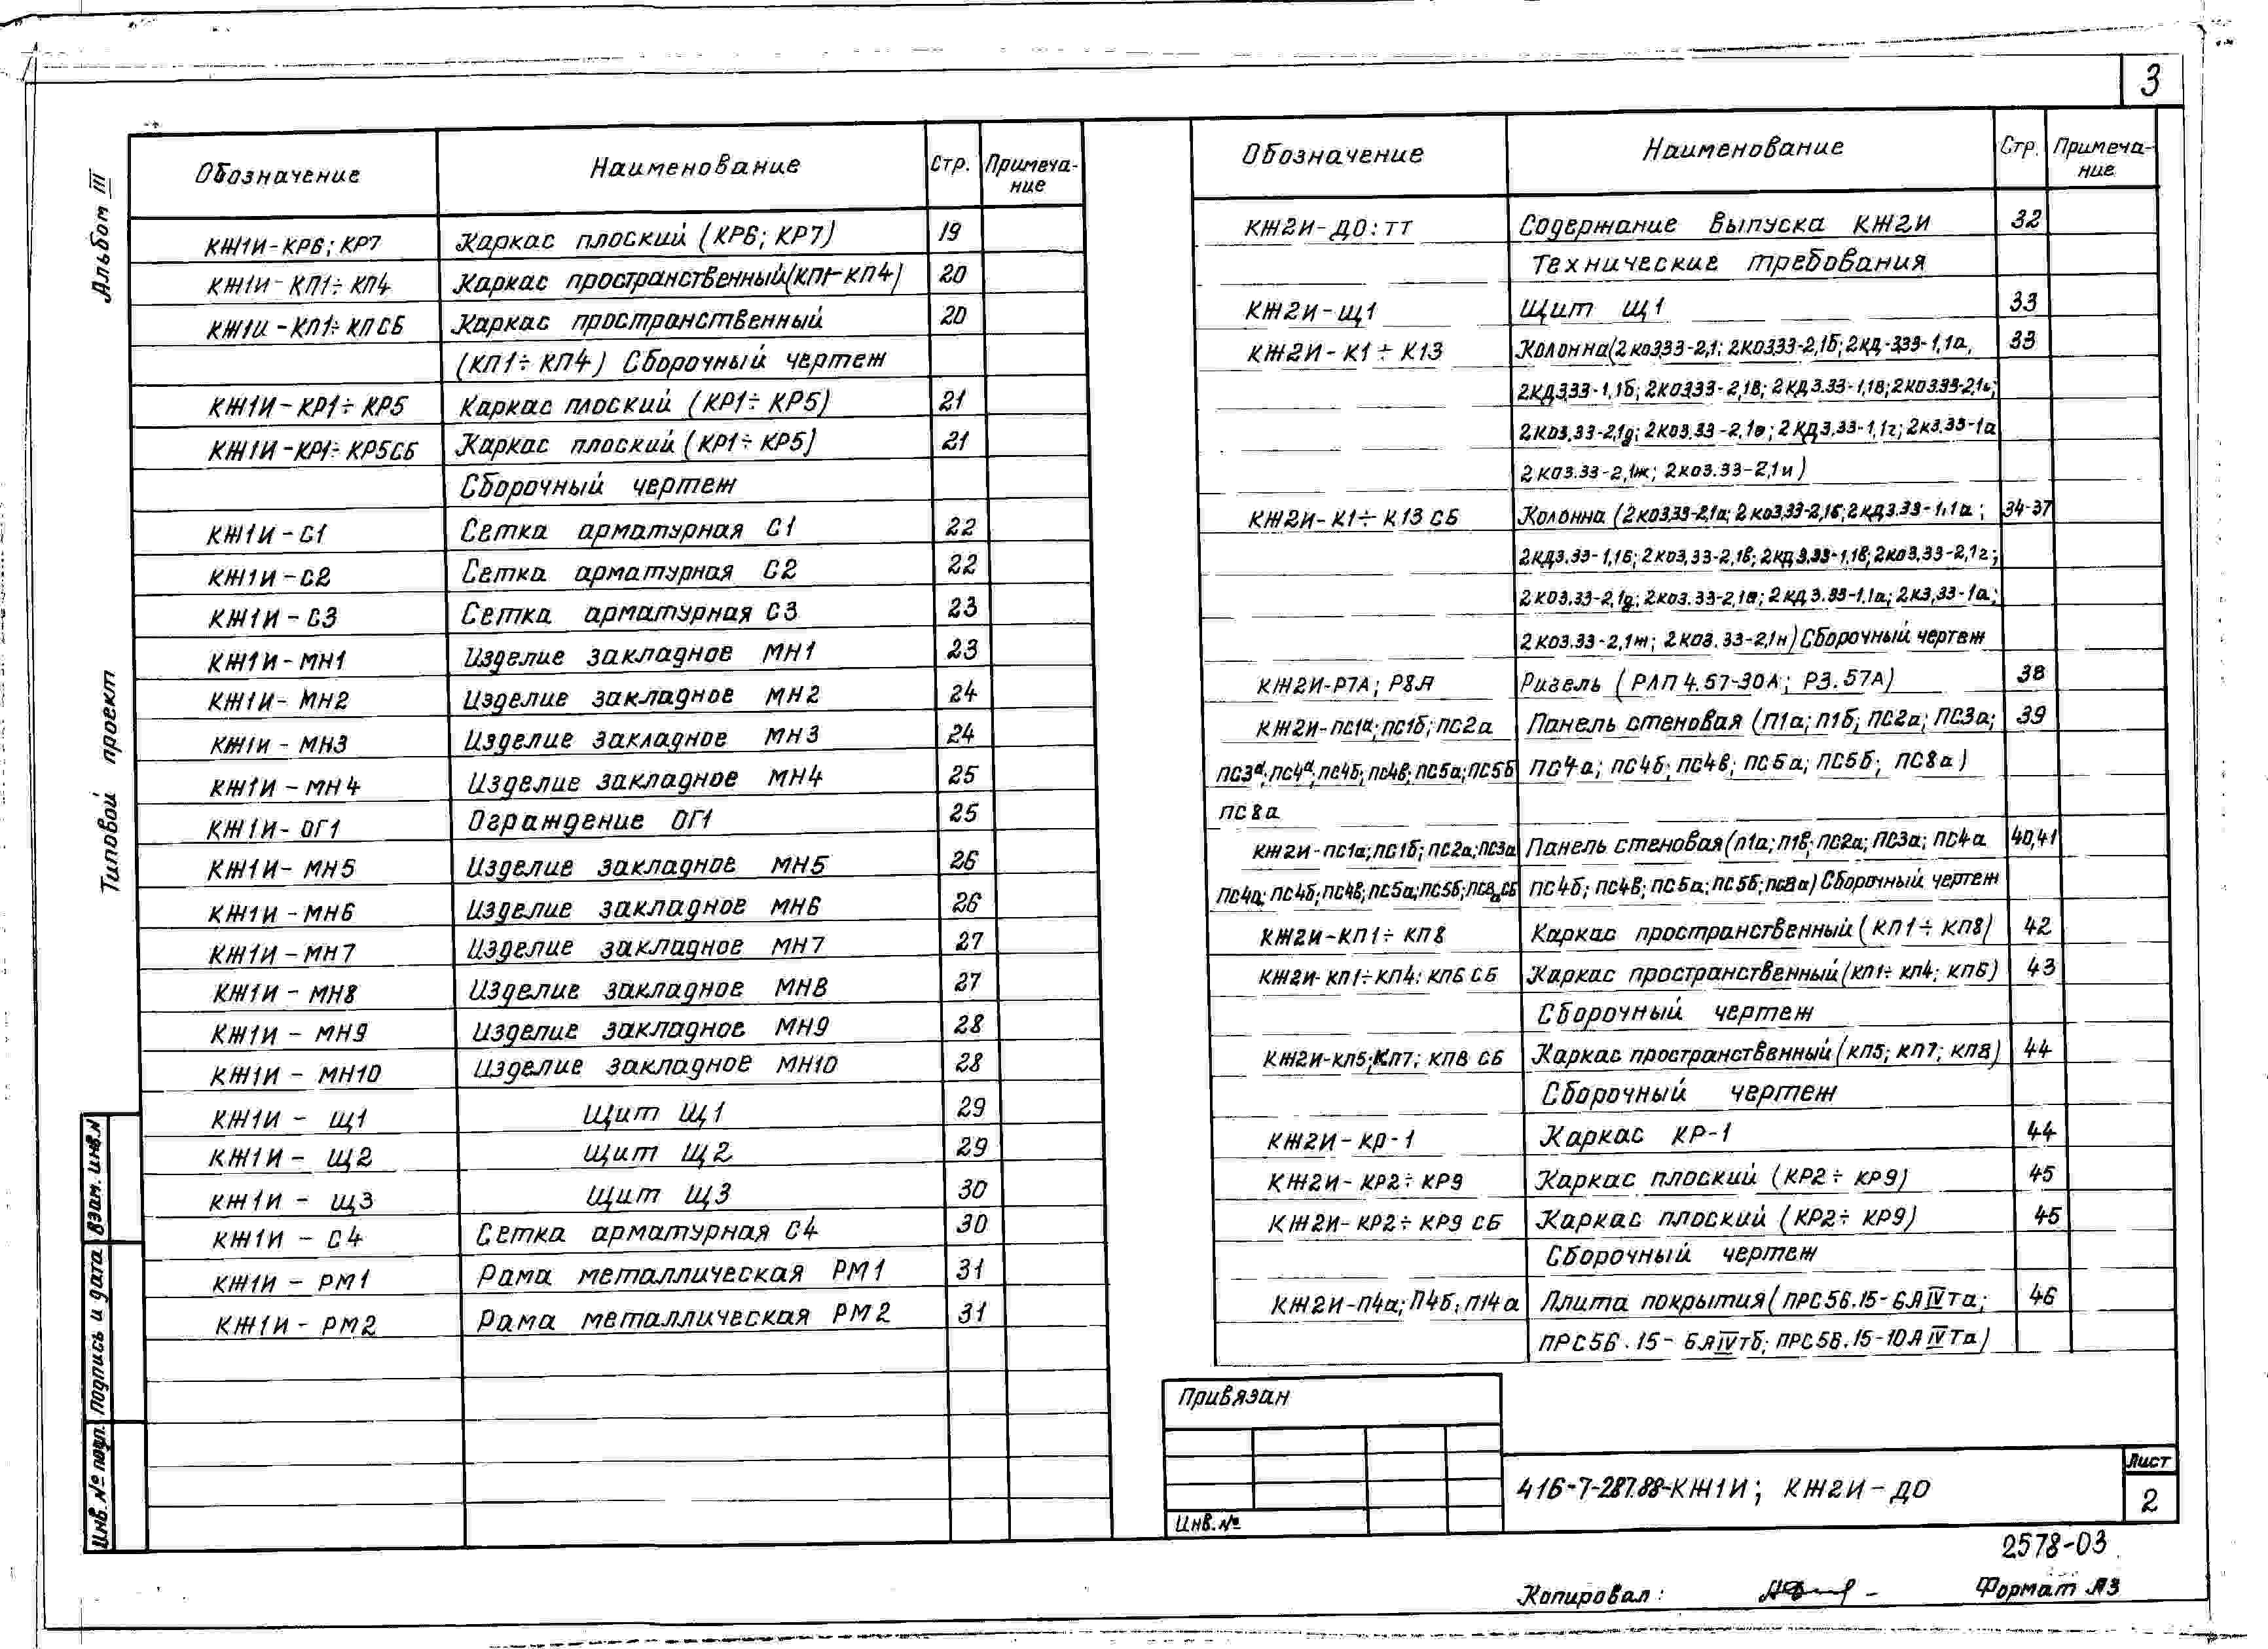 3
Альбом III
Типовой проект
Обозначение Наименование Стр. Примеча-
ние
КЖ1И-КР6; КР7 Каркас плоский (КР6; КР7) 19
КЖ1И-КП1÷КП4 Каркас пространственный(КП1-КП4) 20
КЖ1И-КП1÷КПСБ Каркас пространственный 20
(КП1÷КП4) Сборочный чертеж
КЖ1И-КР1÷КР5 Каркас плоский (КР1÷КР5) 21
КЖ1И-КР1÷КР5СБ Каркас плоский (КР1÷КР5) 21
Сборочный чертеж
КЖ1И-С1 Сетка арматурная С1 22
КЖ1И-С2 Сетка арматурная С2 22
КЖ1И-С3 Сетка арматурная С3 23
КЖ1И-МН1 Изделие закладное МН1 23
КЖ1И-МН2 Изделие закладное МН2 24
КЖ1И-МН3 Изделие закладное МН3 24
КЖ1И-МН4 Изделие закладное МН4 25
КЖ1И-ОГ1 Ограждение ОГ1 25
КЖ1И-МН5 Изделие закладное МН5 26
КЖ1И-МН6 Изделие закладное МН6 26
КЖ1И-МН7 Изделие закладное МН7 27
КЖ1И-МН8 Изделие закладное МН8 27
КЖ1И-МН9 Изделие закладное МН9 28
КЖ1И-МН10 Изделие закладное МН10 28
КЖ1И-Щ1 Щит Щ1 29
КЖ1И-Щ2 Щит Щ2 29
КЖ1И-Щ3 Щит Щ3 30
КЖ1И-С4 Сетка арматурная С4 30
КЖ1И-РМ1 Рама металлическая РМ1 31
КЖ1И-РМ2 Рама металлическая РМ2 31
Обозначение Наименование Стр. Примеча-
ние
КЖ2И-ДО:ТТ Содержание выпуска КЖ2И 32
Технические требования
КЖ2И-Щ1 Щит Щ1 33
КЖ2И-К1÷К13 Колонна(2КО3.33-2,1; 2КО3.33-2,1б; 2КД-3.33-1,1а, 33
2КД3.33-1,1б; 2КО3.33-2,1в; 2КД3.33-1,1в; 2КО3.33-2,1г;
2КО3.33-2,1д; 2КО3.33-2,1е; 2КД3.33-1,1г; 2К3.33-1а
2КО3.33-2,1ж; 2КО3.33-2,1и)
КЖ2И-К1÷К13 СБ Колонна (2КО3.33-2,1а; 2КО3.33-2,1б; 2КД3.33-1,1а; 34-37
2КД3.33-1,1б; 2КО3.33-2,1в; 2КД3.33-1,1в; 2КО3.33-2,1г;
2КО3.33-2,1д; 2КО3.33-2,1е; 2КД3.33-1,1а; 2К3,33-1а;
2КО3.33-2,1ж; 2КО3.33-2,1н) Сборочный чертеж
КЖ2И-Р7А; Р8А Ригель (РЛП4.57-30А; Р3.57А) 38
КЖ2И-ПС1а; ПС1б; ПС2а Панель стеновая (П1а; П1б; ПС2а; ПС3а; 39
ПС3а; ПС4а; ПС4б; ПС4в; ПС5а; ПС5б ПС4а; ПС4б; ПС4в; ПС5а; ПС5б; ПС8а)
ПС8а
КЖ2И-ПС1а; ПС1б; ПС2а; ПС3а Панель стеновая(П1а; П1в; ПС2а; ПС3а; ПС4а 40,41
ПС4а; ПС4б; ПС4в; ПС5а; ПС5б; ПС8а СБ ПС4б; ПС4в; ПС5а; ПС5б; ПС8а) Сборочный чертеж
КЖ2И-КП1÷КП8 Каркас пространственный (КП1÷КП8) 42
КЖ2И-КП1÷КП4; КП6 СБ Каркас пространственный (КП1÷КП4; КП6) 43
Сборочный чертеж
КЖ2И-КП5; КП7; КП8 СБ Каркас пространственный (КП5; КП7; КП8) 44
Сборочный чертеж
КЖ2И-КР-1 Каркас КР-1 44
КЖ2И-КР2÷КР9 Каркас плоский (КР2÷КР9) 45
КЖ2И-КР2÷КР9 СБ Каркас плоский (КР2÷КР9) 45
Сборочный чертеж
КЖ2И-П4а; П4б; П14а Плита покрытия (ПРС56.15-6АIVТа; 46
ПРС56.15-6АIVТб; ПРС56.15-10АIVТа)
Привязан
Инв.№
416-7-287.88-КЖ1И; КЖ2И-ДО
Лист
2
2578-03
Копировал:
Формат А3
Взам. инв.№
Подпись и дата
Инв. № подл.